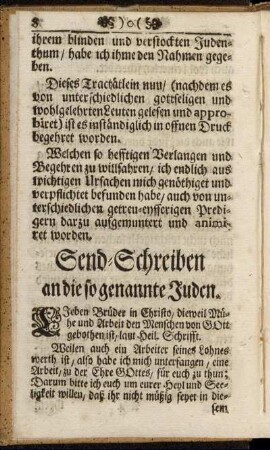 8 )o(
ihrem blinden und verstockten Juden-
thum/ habe ich ihme den Nahmen gege-
ben.
Dieses Tractätlein nun/ (nachdem es
von unterschiedlichen gottseligen und
wohlgelehrten Leuten gelesen und appro-
biret) ist es inständiglich in offnen Druck
begehret worden.
Welchen so hefftigen Verlangen und
Begehren zu willfahren/ ich endlich aus
wichtigen Ursachen mich genöthiget und
verpflichtet befunden habe/ auch von un-
terschiedlichen getreu-eyfferigen Predi-
gern darzu aufgemuntert und animi-
ret worden.
Send-Schreiben
an die so genannte Juden.
LJeben Brüder in Christo/ dieweil Mü-
he und Arbeit den Menschen von GOtt
gebothen ist/ laut Heil. Schrifft.
Weilen auch ein Arbeiter seines Lohnes
werth ist/ also habe ich mich unterfangen/ eine
Arbeit/ zu der Ehre GOttes/ für euch zu thun:
Darum bitte ich euch um eurer Heyl und See-
ligkeit willen/ daß ihr nicht müßig seyet in die-
sem